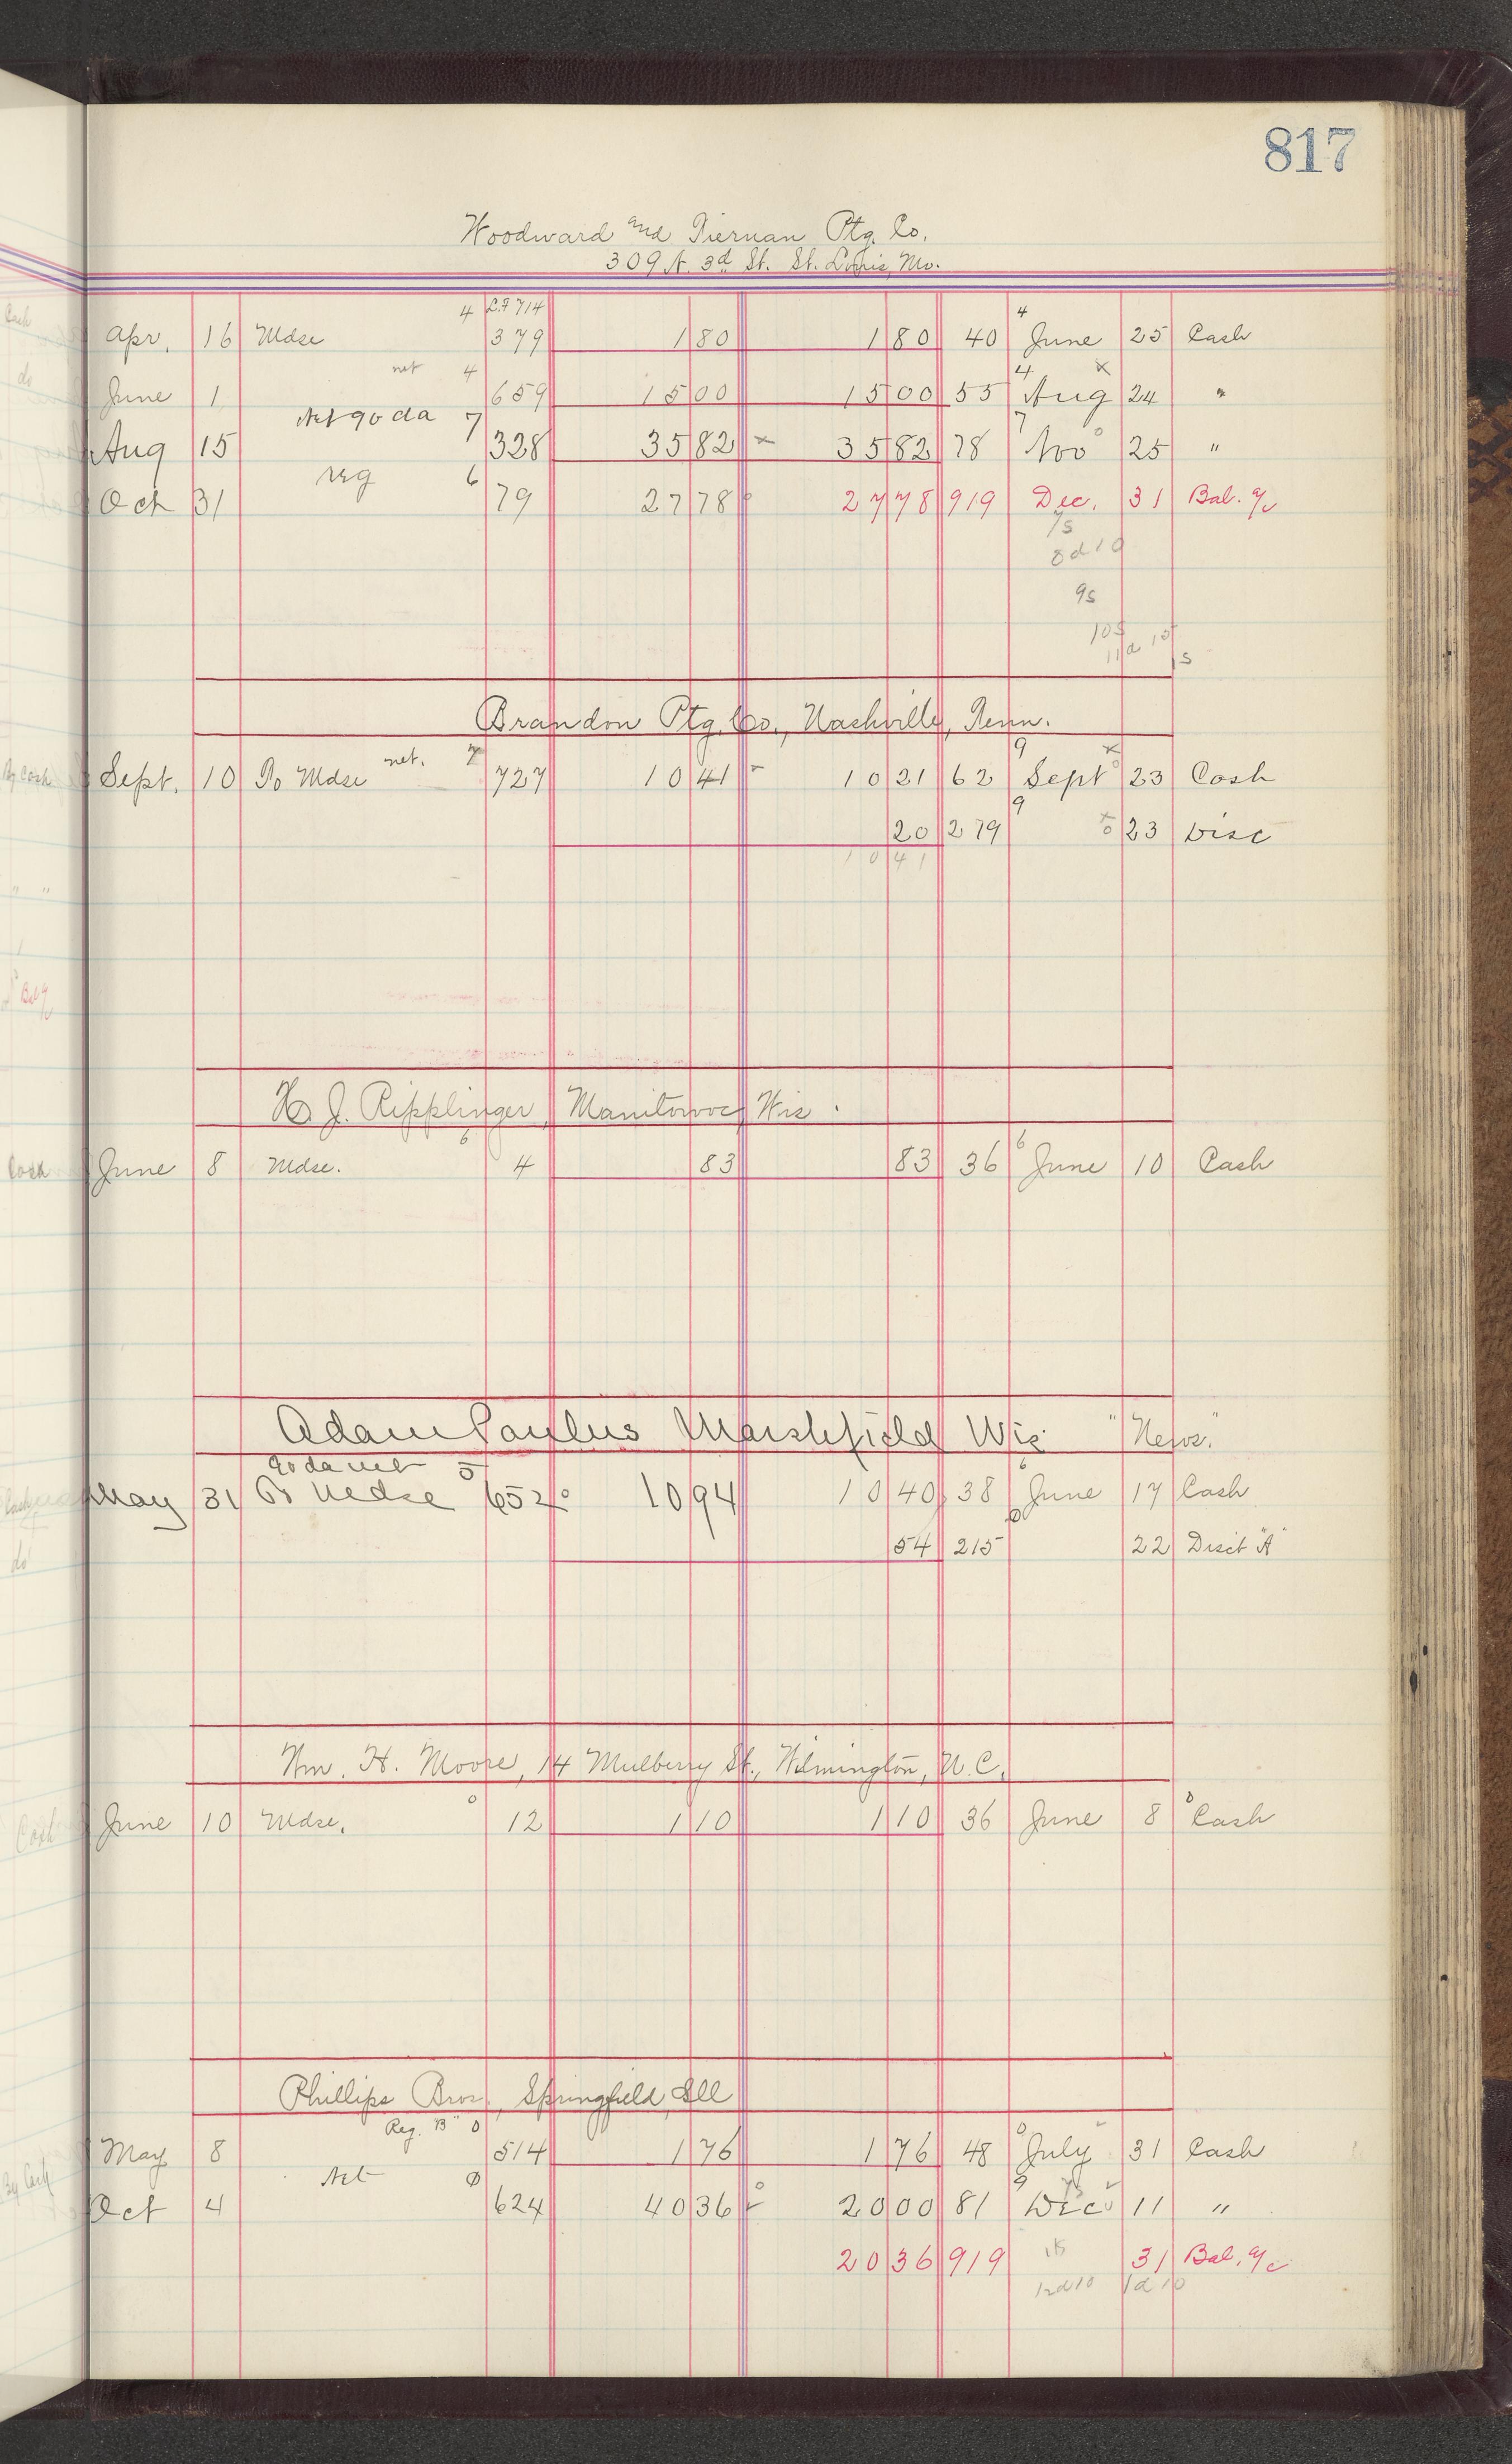 817
Woodward and Tiernan Ptg. Co.
309 N. 3d St. St. Louis, Mo.
4 L.F 714
Apr. 16 Mdse 379 1 80 1 80 40 4 June 25 Cash
net 4
June 1 659 15 00 15 00 55 4 Aug x 24 "
Net 90 da 7
Aug 15 328 35 82 x 35 82 78 7 Nov 25 "
reg 6
Oct 31 79 27 78 27 78 919 Dec. 31 Bal. a/c
7s
8d10
9s
10s
11d 10
1s
Brandon Ptg. Co., Nashville, Tenn.
Sept. 10 To Mdse net. 727 10 41 10 21 62 9 Sept x 23 Cash
20 279 9 x 23 Disc
10 41
H J. Ripplinger, Manitowoc, Wis.
June 8 Mdse. 6 4 83 83 36 6 June 10 Cash
Adam Paulus Marshfield Wis. "News."
90 da net 5
May 31 To Mdse 652 10 94 10 40 38 6 June 17 Cash
54 215 6 22 Disc't "A"
Wm. H. Moore, 14 Mulberry St., Wilmington, N.C.
June 10 Mdse. 0 12 1 10 1 10 36 June 8 Cash
Phillips Bros., Springfield, Ill
Reg. "B" 0
May 8 514 1 76 1 76 48 0 July 31 Cash
Net 0
Oct 4 624 40 36 20 00 81 9 Dec 11 "
20 36 919 31 Bal. a/c
12d10 1d10